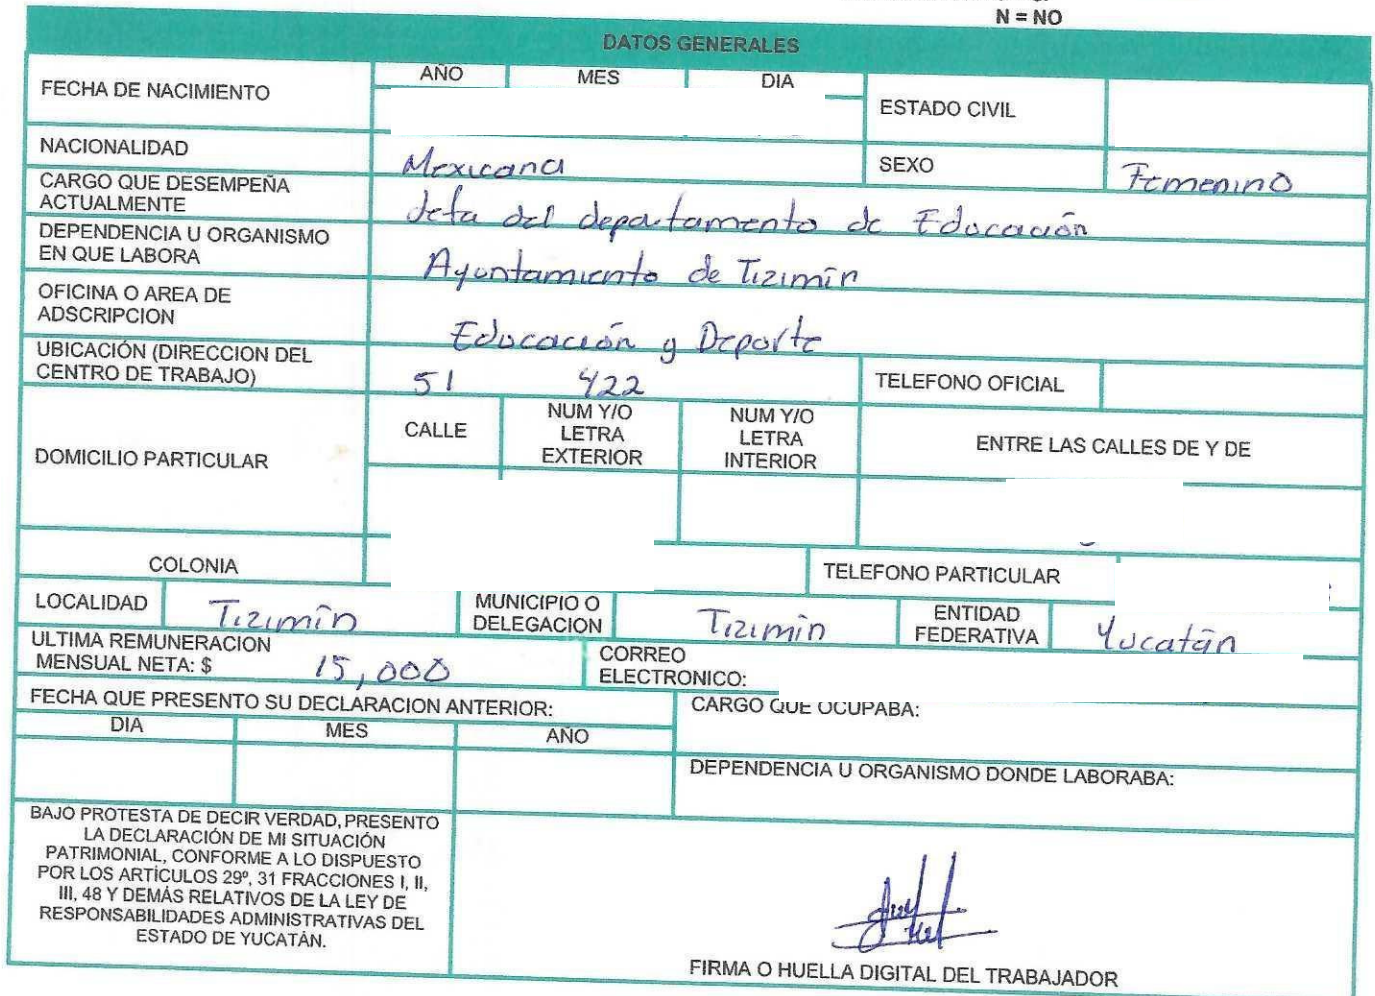 N = NO
DATOS GENERALES
FECHA DE NACIMIENTO
AÑO MES DIA
ESTADO CIVIL
NACIONALIDAD Mexicana SEXO Femenino
CARGO QUE DESEMPEÑA
ACTUALMENTE
Jefa del departamento de Educación
DEPENDENCIA U ORGANISMO
EN QUE LABORA
Ayuntamiento de Tizimín
OFICINA O AREA DE
ADSCRIPCION
Educación y Deporte
UBICACIÓN (DIRECCION DEL
CENTRO DE TRABAJO)
51 422
TELEFONO OFICIAL
DOMICILIO PARTICULAR
CALLE
NUM Y/O
LETRA
EXTERIOR
NUM Y/O
LETRA
INTERIOR
ENTRE LAS CALLES DE Y DE
COLONIA
TELEFONO PARTICULAR
LOCALIDAD Tizimín
MUNICIPIO O
DELEGACION
Tizimín
ENTIDAD
FEDERATIVA
Yucatán
ULTIMA REMUNERACION
MENSUAL NETA: $ 15,000
CORREO
ELECTRONICO:
FECHA QUE PRESENTO SU DECLARACION ANTERIOR:
DIA MES AÑO
CARGO QUE OCUPABA:
DEPENDENCIA U ORGANISMO DONDE LABORABA:
BAJO PROTESTA DE DECIR VERDAD, PRESENTO
LA DECLARACIÓN DE MI SITUACIÓN
PATRIMONIAL, CONFORME A LO DISPUESTO
POR LOS ARTÍCULOS 29º, 31 FRACCIONES I, II,
III, 48 Y DEMÁS RELATIVOS DE LA LEY DE
RESPONSABILIDADES ADMINISTRATIVAS DEL
ESTADO DE YUCATÁN.
FIRMA O HUELLA DIGITAL DEL TRABAJADOR